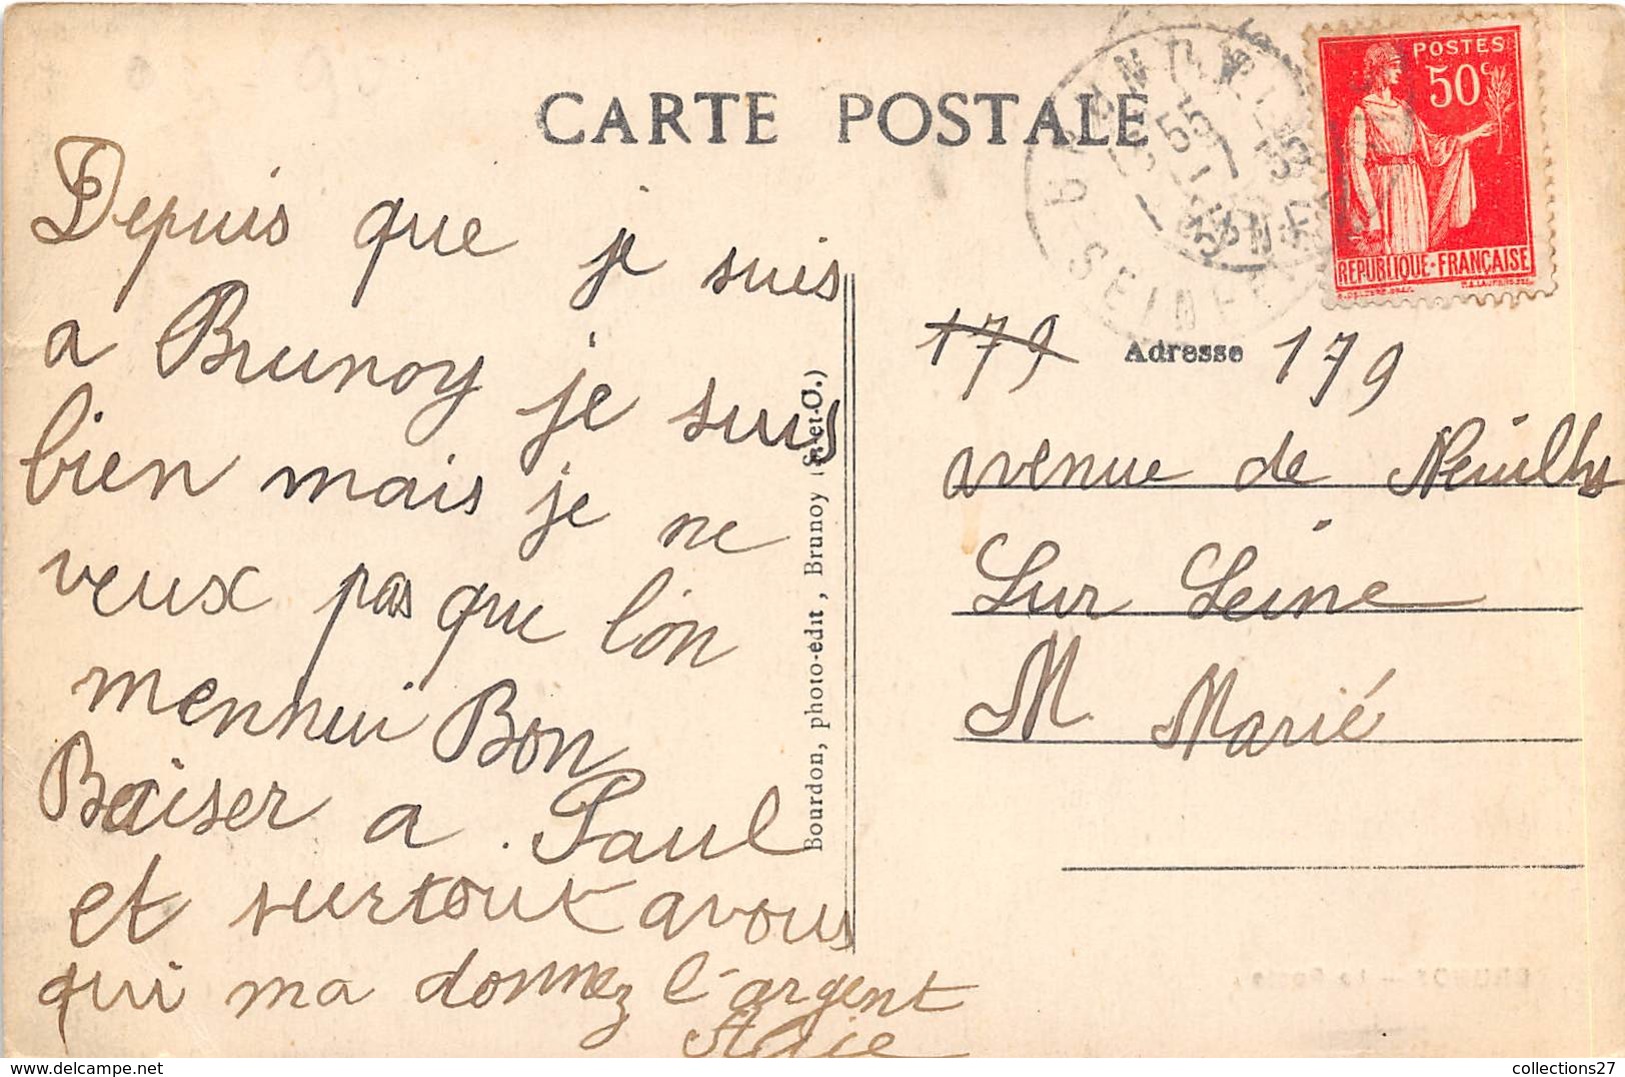 CARTE POSTALE
POSTES
50c
REPUBLIQUE-FRANÇAISE
Depuis que je suis
a Brunoy je suis
bien mais je ne
veux pas que l'on
mennui Bon
Baiser a Paul
et surtout a vous
qui ma donnez l'argent
Bourdon, photo-édit, Brunoy (S.-et-O.)
179 Adresse 179
avenue de Neuilly
Sur Seine
M. Marié
SEINE
collections27
https://www.delcampe.net